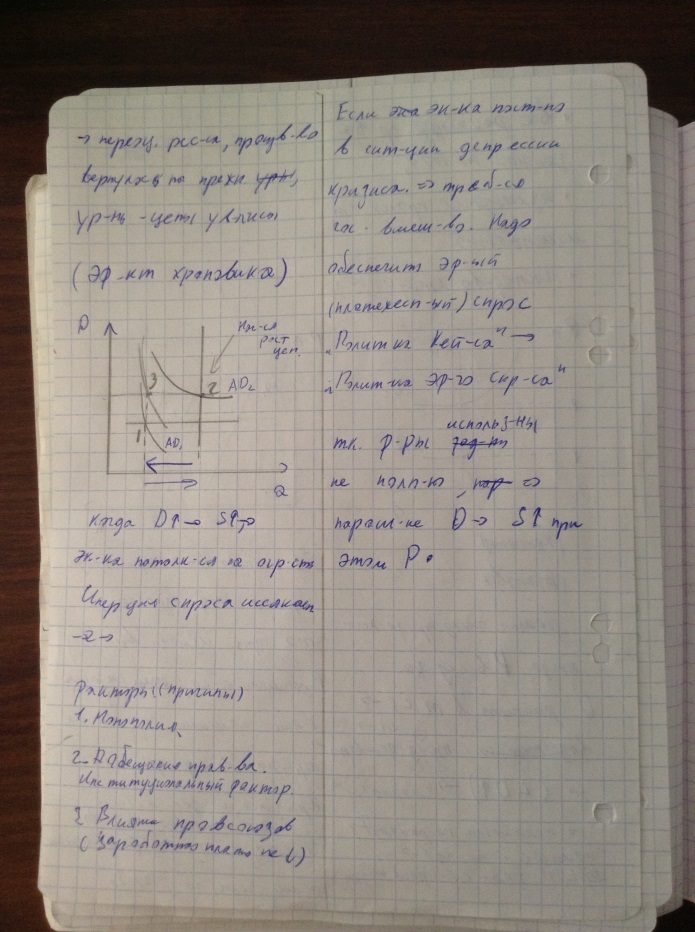 → переоц. рес-са, произв-во
вернулась на прежн. урн,
ур-нь - цены увелич
(Эф-кт храповика)
P
Нач-ся
рост
цен.
3
2 AD₂
1
AD₁
Q
когда D↑→ S↑→
эк-ка потолк-ся на огр-сть
Импульс спроса иссякает
→
Факторы (причины)
1. Монополия
2. Обещание прав-ва.
Институциональный фактор.
3 Влияние профсоюзов
(Заработная плата не ↓)
Если эка эк-ка
в сит-ции депрессии
кризиса. ⇒ треб-ся
гос. вмеш-во. Надо
обеспечить эф-ый
(платежесп-ый) спрос
"Полит-ка Кей-са" →
"Полит-ка эф-го спр-са"
использ-ны
тк. р-ры зад-ны
не полн-ю, ⇒
D → S↑ при
этом P •